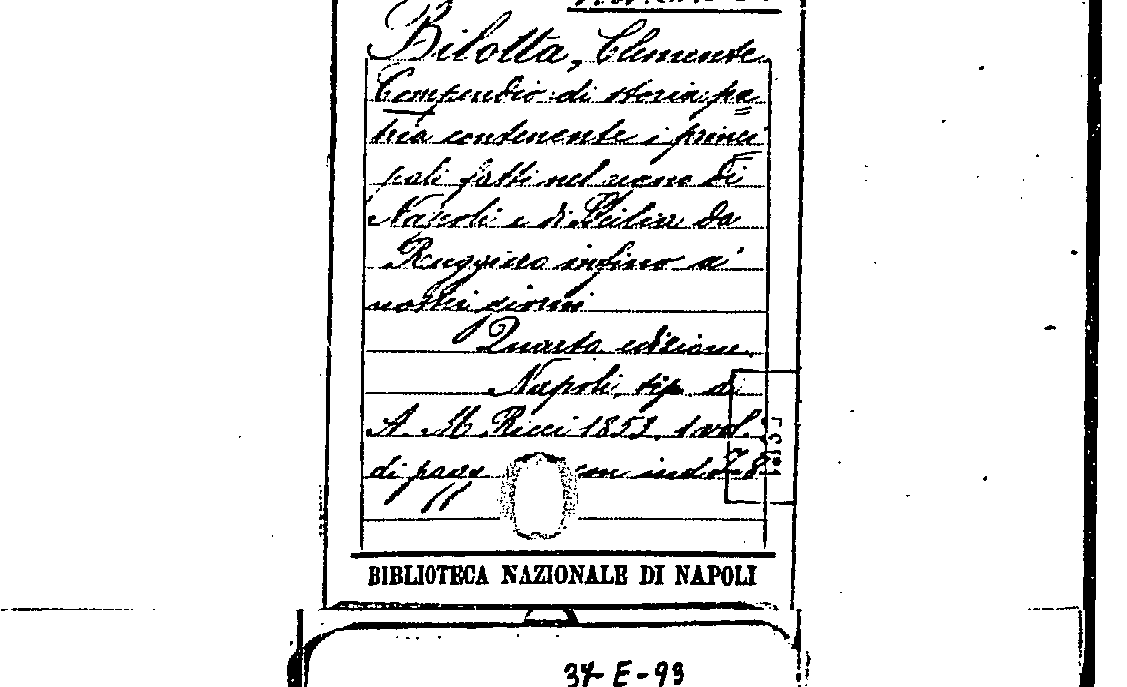 Bilotta, Clemente
Compendio di storia pa=
tria contenente i princi
pali fatti nel regno di
Napoli e di Sicilia da
Ruggiero infino a'
nostri giorni
Quarta edizione
Napoli, tip di
A. M. Ricci 1853. 1 vol.
di pagg in
BIBLIOTECA NAZIONALE DI NAPOLI
37-E-93